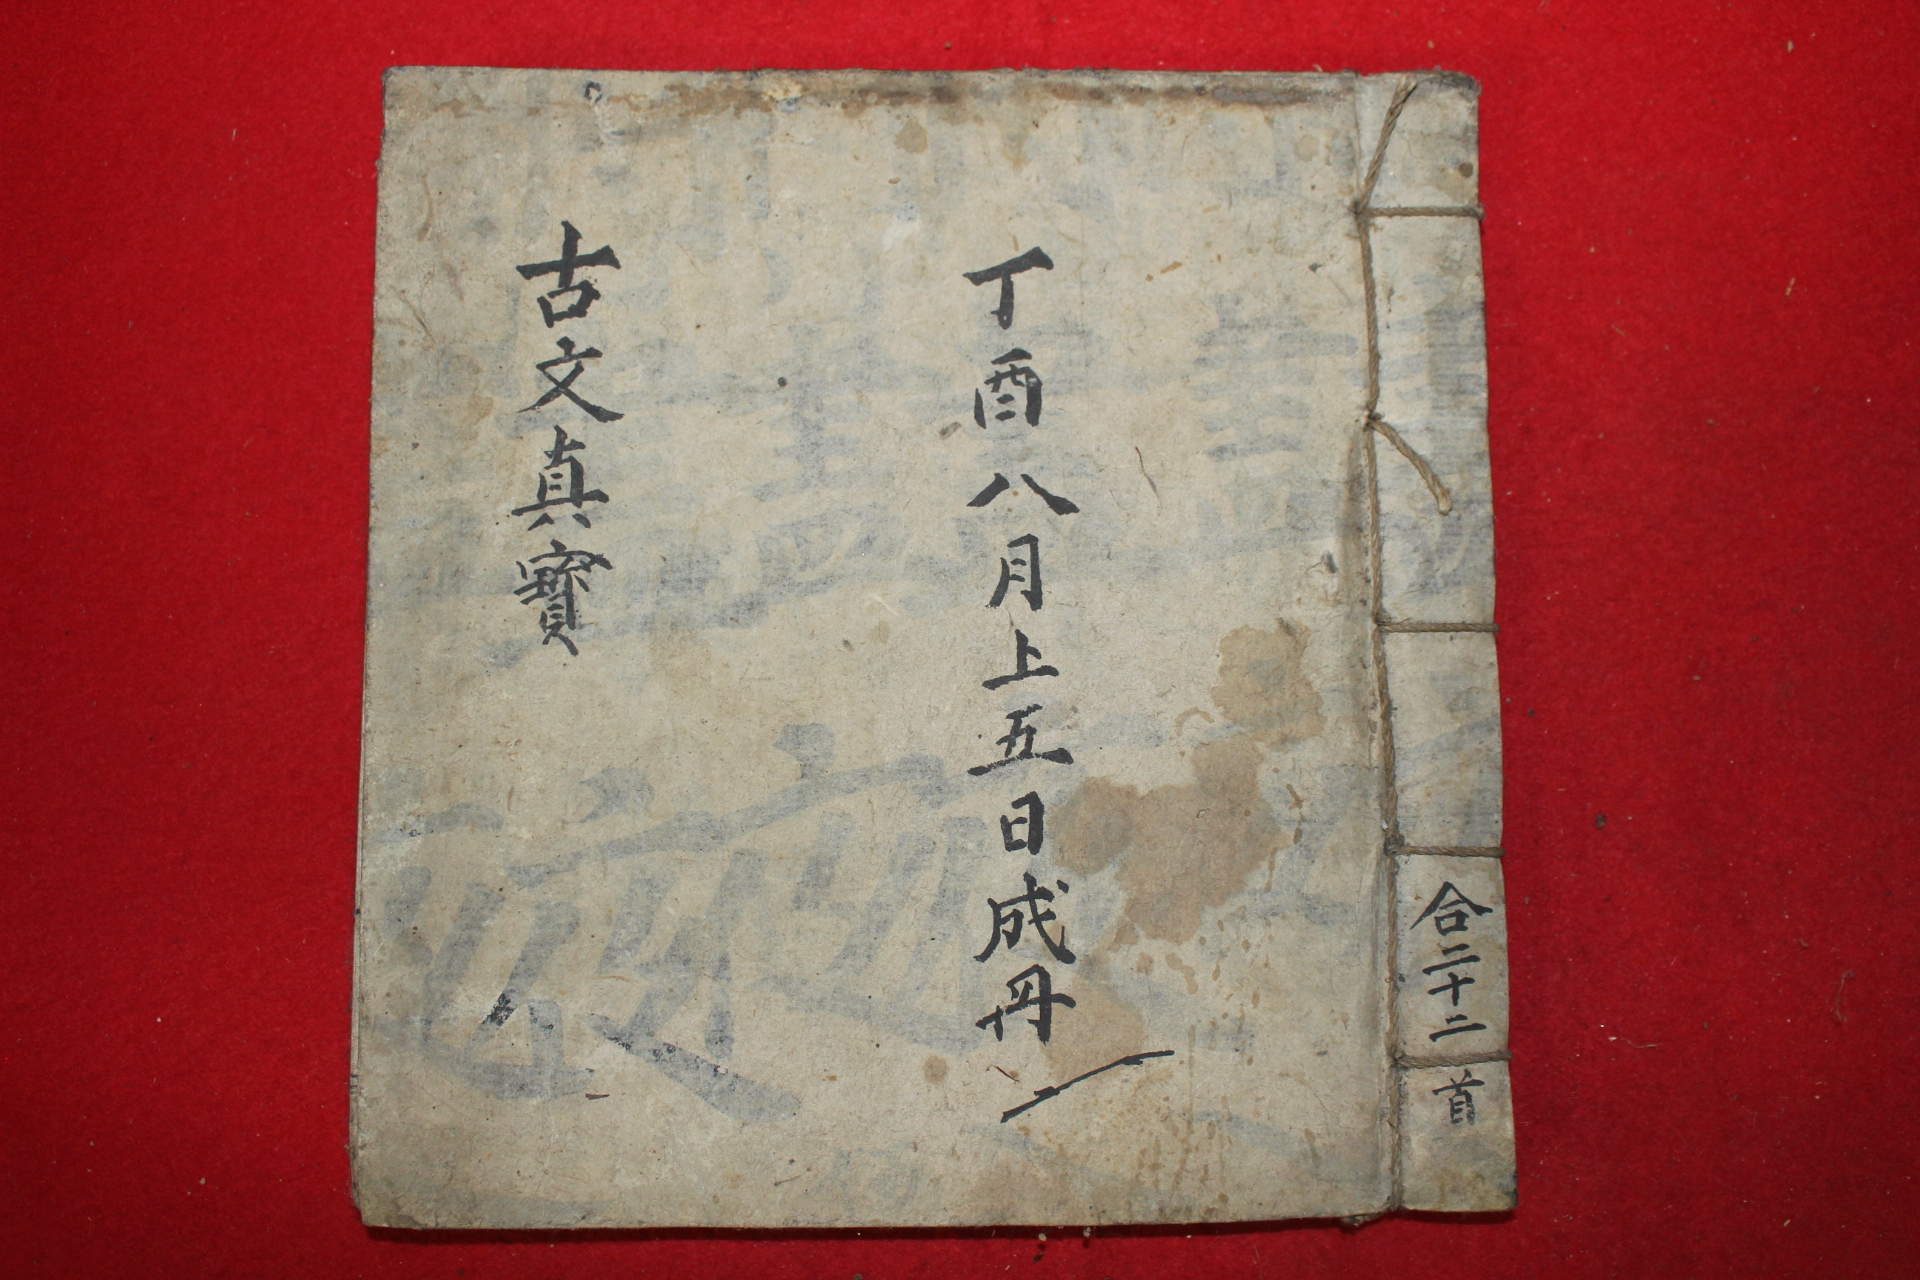 合二十二首
丁酉八月上五日成冊
古文真寶